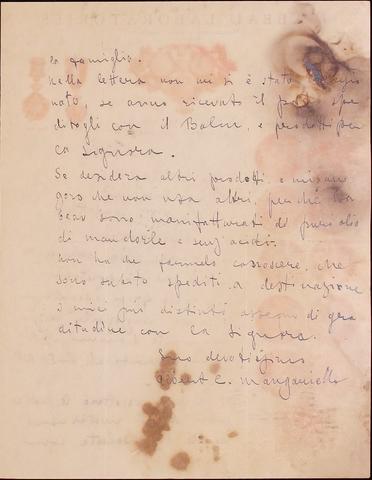 la famiglia.
nella lettera non mi si è stato
nato, se anno ricevuto il
con il Balm, e prodotti per
la Signora.
Se desidera altri prodotti, e
che non usa altri, perché
beau sono manifatturati di puro olio
di mandorle e senz'acidi.
non ha che farmelo conoscere, che
sono subito spediti a destinazione
i miei più distinti ossequi di gra
ditudine con la Signora.
Suo devotissimo
C. Manganiello